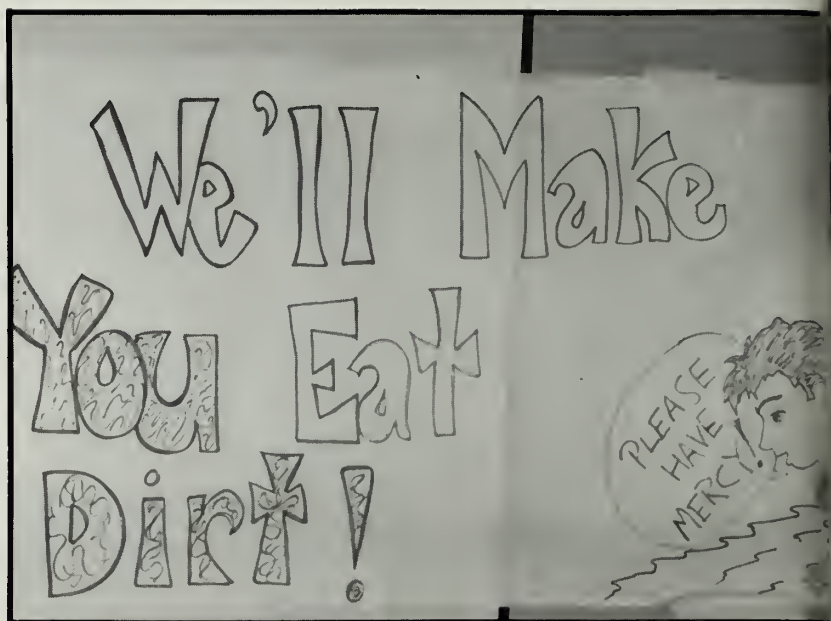 We'll Make
You Eat
Dirt!
PLEASE
HAVE
MERCY!